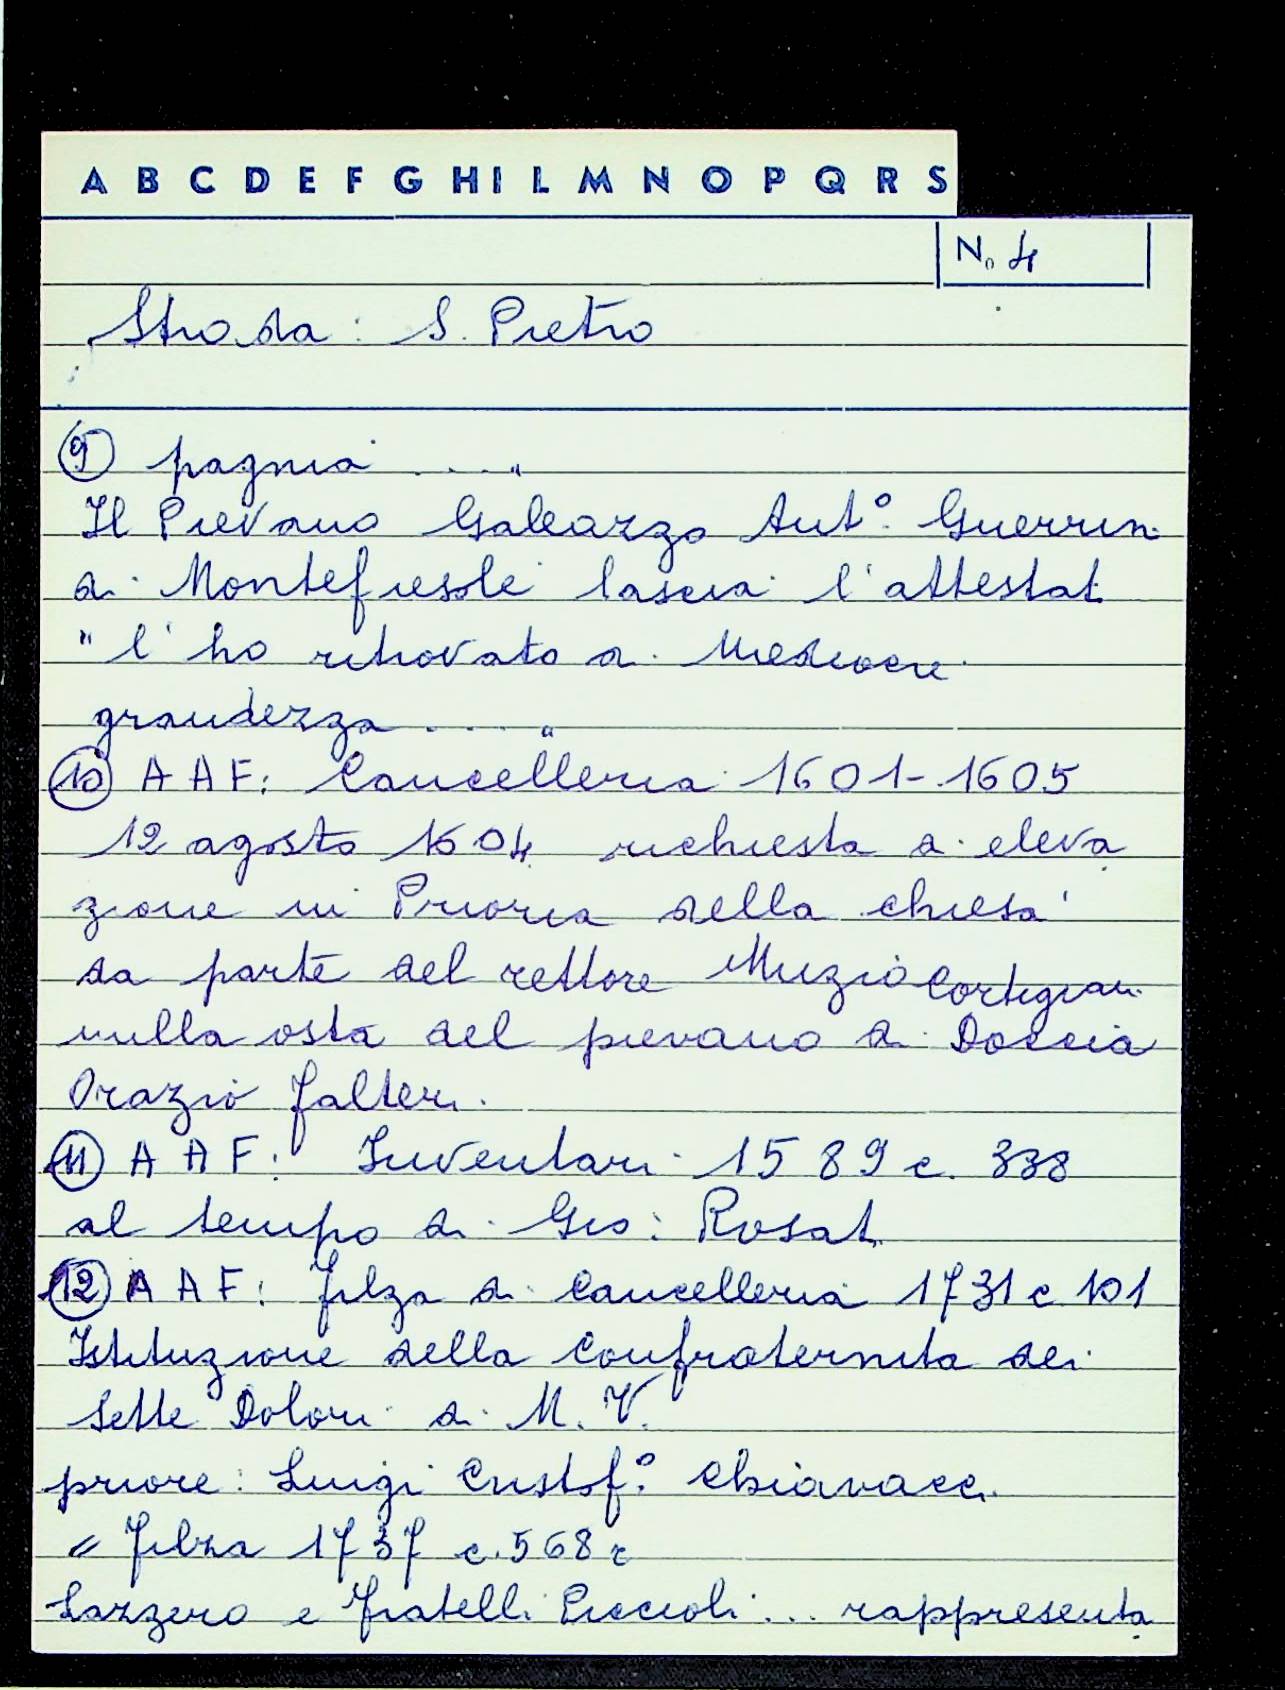 A B C D E F G H I L M N O P Q R S
N. 4
Strada: S. Pietro
9 pagnia ...."
Il Pievano Galeazzo Ant° Guerrini
di Montefiesole lascia l'attestati
"l'ho ritrovato di mediocre
grandezza ...."
10 AAF: Cancelleria 1601-1605
12 agosto 1604 richiesta di eleva
zione in Prioria della chiesa
da parte del rettore Muzio Cortigiani
nulla osta del pievano di Doccia
Orazio Falteri.
11 AAF: Inventari 1589 c. 338
al tempo di Gio: Rosati
12 AAF: Filza di Cancelleria 1731 c 101
Istituzione della Confraternita dei
Sette Dolori di M. V.
priore: Luigi Cristof° Chiavacci
" Filza 1737 c. 568 r
Lazzero e Fratelli Piccioli ... rappresenta